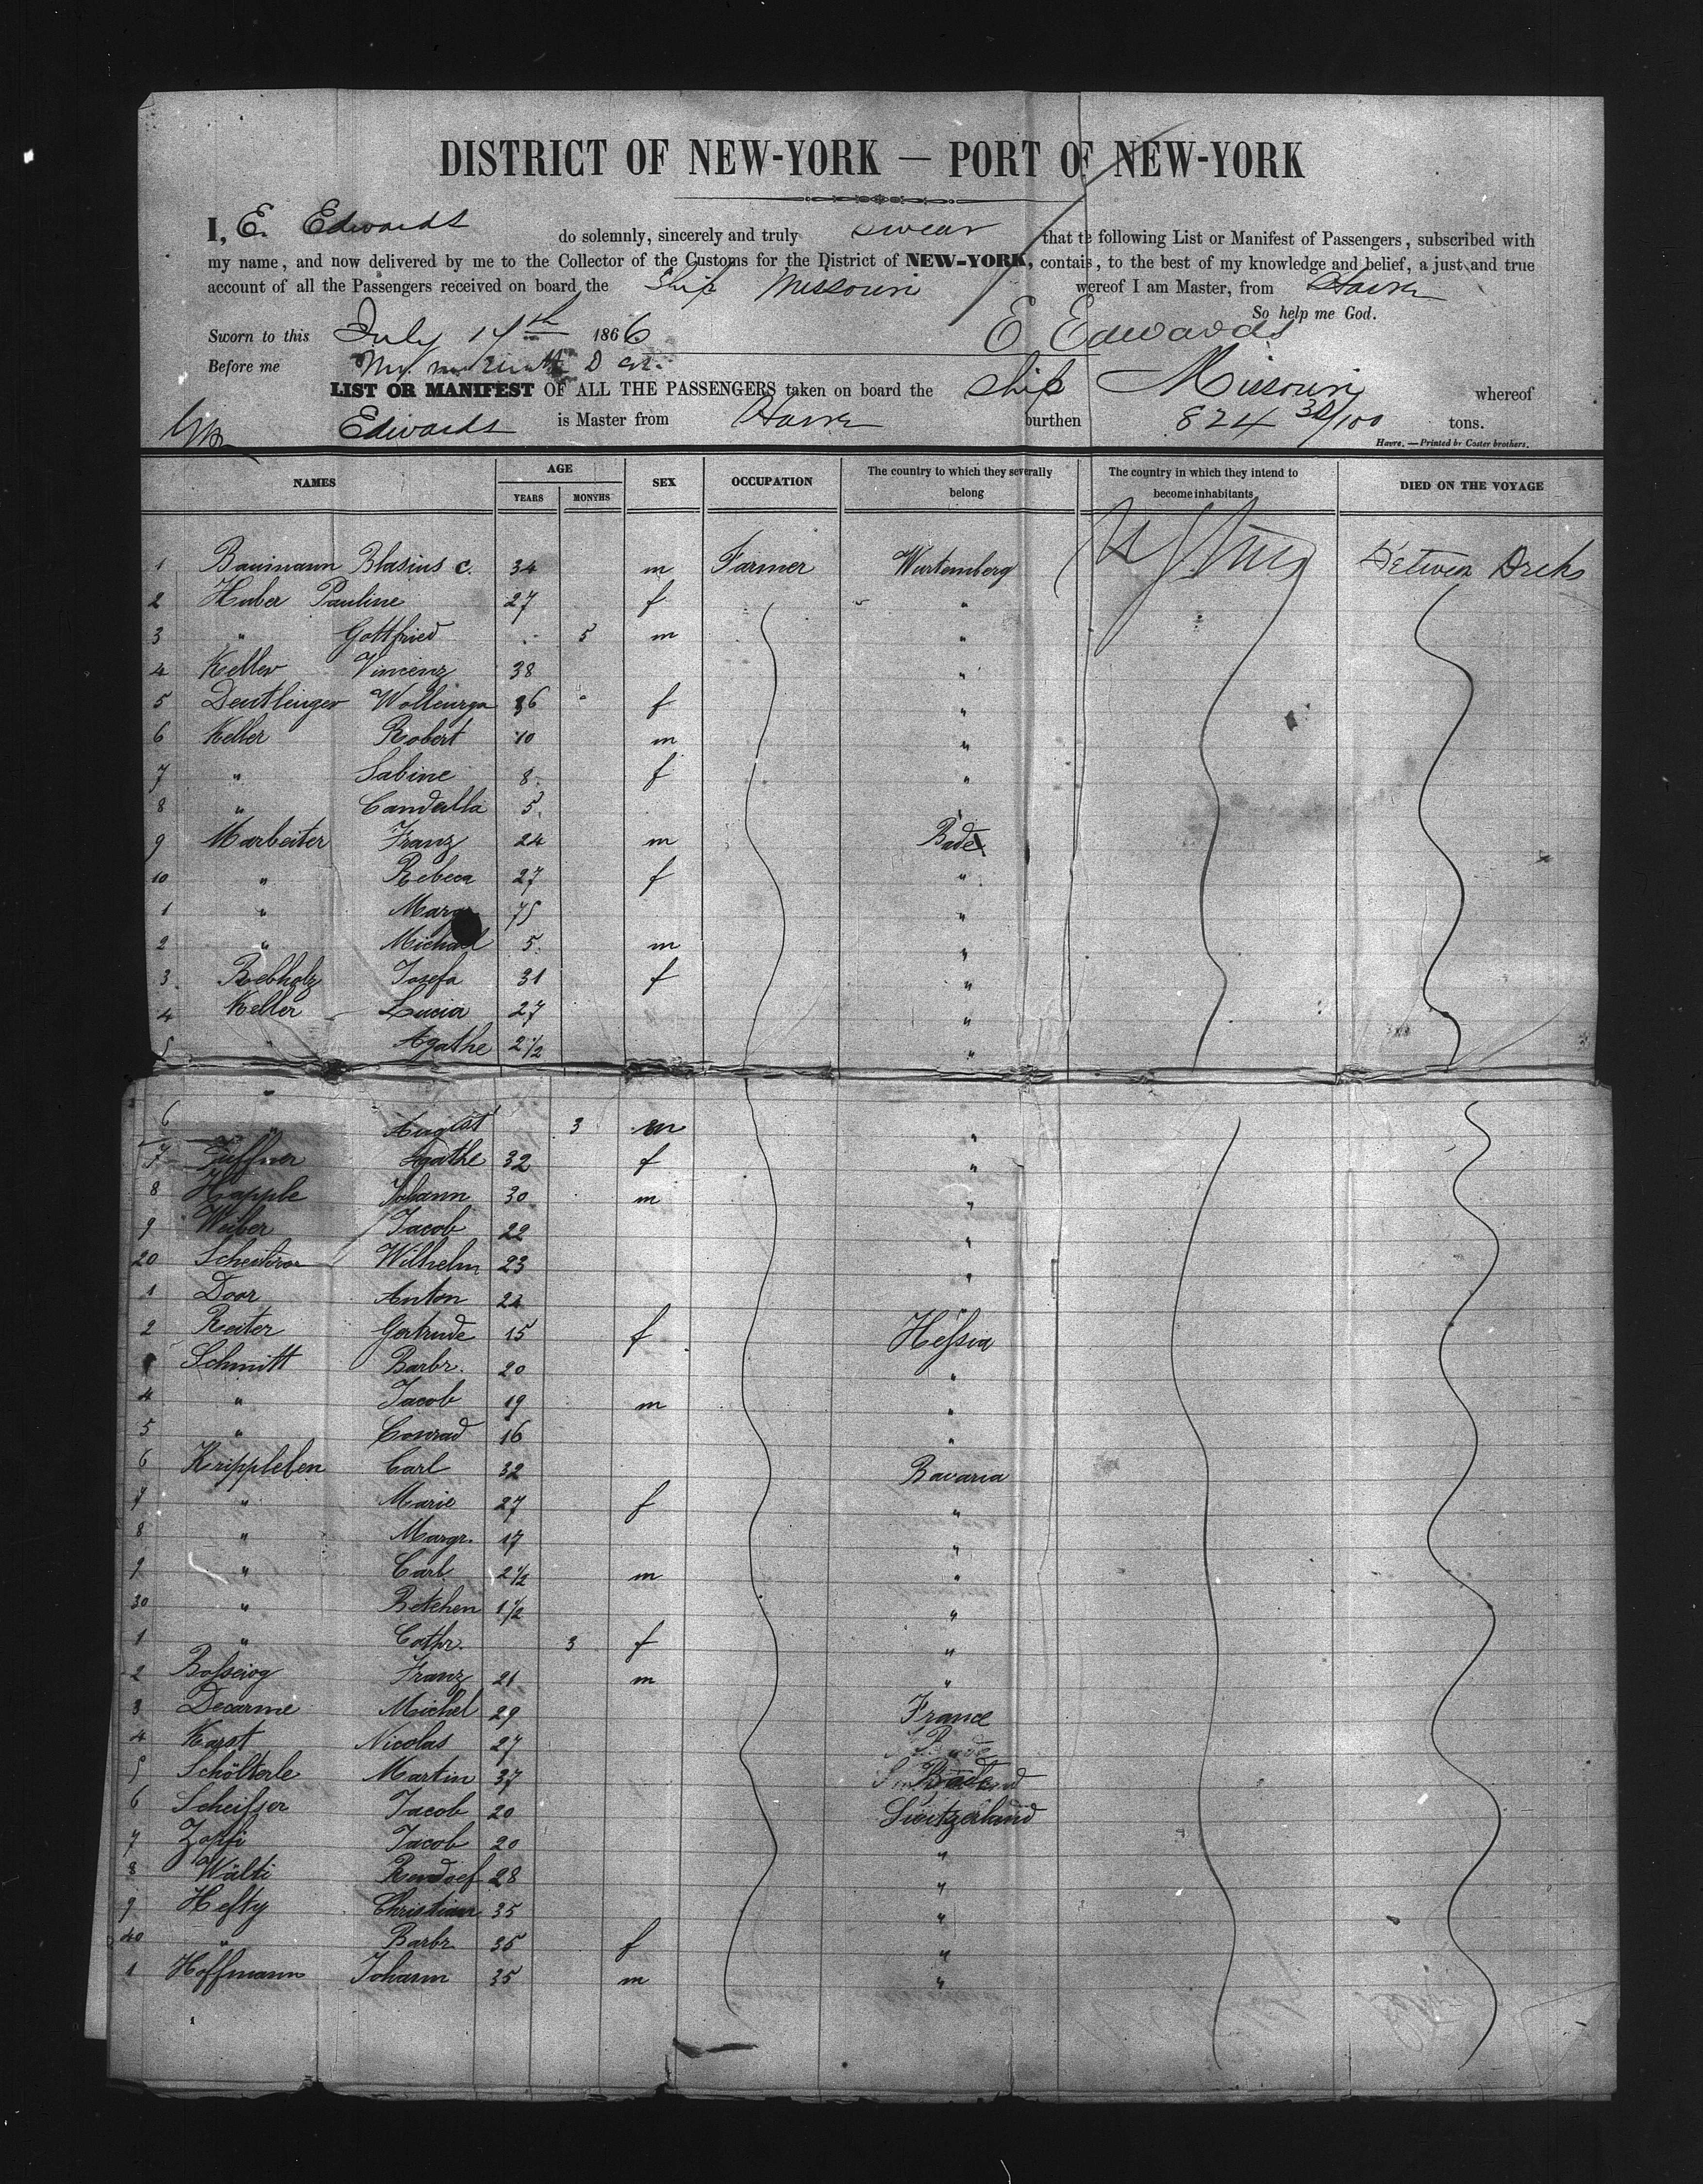 DISTRICT OF NEW-YORK — PORT OF NEW-YORK
I, E. Edwards do solemnly, sincerely and truly swear that te following List or Manifest of Passengers, subscribed with
my name, and now delivered by me to the Collector of the Customs for the District of NEW-YORK, contais, to the best of my knowledge and belief, a just and true
account of all the Passengers received on board the Ship Missouri wereof I am Master, from Havre
So help me God.
Sworn to this July 14th 1866 E Edwards
Before me
LIST OR MANIFEST OF ALL THE PASSENGERS taken on board the Ship Missouri whereof
Edwards is Master from Havre burthen 824 38/100 tons.
Havre. — Printed by Coster brothers.
NAMES AGE YEARS MONTHS SEX OCCUPATION The country to which they severally belong The country in which they intend to become inhabitants DIED ON THE VOYAGE
1 Baumann Blasius c. 34 m Farmer Wurtemberg Between Decks
2 Huber Pauline 27 f "
3 " Gottfried 5 m "
4 Keller Vincenz 38 "
5 Deutlinger 36 f "
6 Keller Robert 10 m "
7 " Sabine 8 f "
8 " 5 "
9 Marbeiter Franz 24 m Bade
10 " Rebeca 27 f "
1 " 75 "
2 " Michael 5 m "
3 Rebholz Josefa 31 f "
4 Keller Lucia 27 "
5 " Agathe 2 1/2 "
6 " August 3 m "
7 Agathe 32 f "
8 Happle Johann 30 m "
9 Weiber Jacob 22 "
20 Wilhelm 23 "
1 Door Anton 24 "
2 Reiter Gertrude 15 f Hessia
Schmitt Barbr. 20 "
4 " Jacob 19 m "
5 " Conrad 16 "
6 Krippleben Carl 32 Bavaria
7 " Marie 27 f "
8 " Margr. 17 "
9 " Carl 2 1/2 m "
30 " Betchen 1 1/2 "
1 " Cathr. 3 f "
2 Franz 21 m "
3 Decarme Michel 29 France
4 Karst Nicolas 27
5 Schölterle Martin 37 Bade
6 Scheisser Jacob 20 Switzerland
7 Zopfi Jacob 20 "
8 Wälti 28 "
9 Hefty Christian 35 "
40 " Barbr 35 f "
1 Hoffmann Johann 35 m "